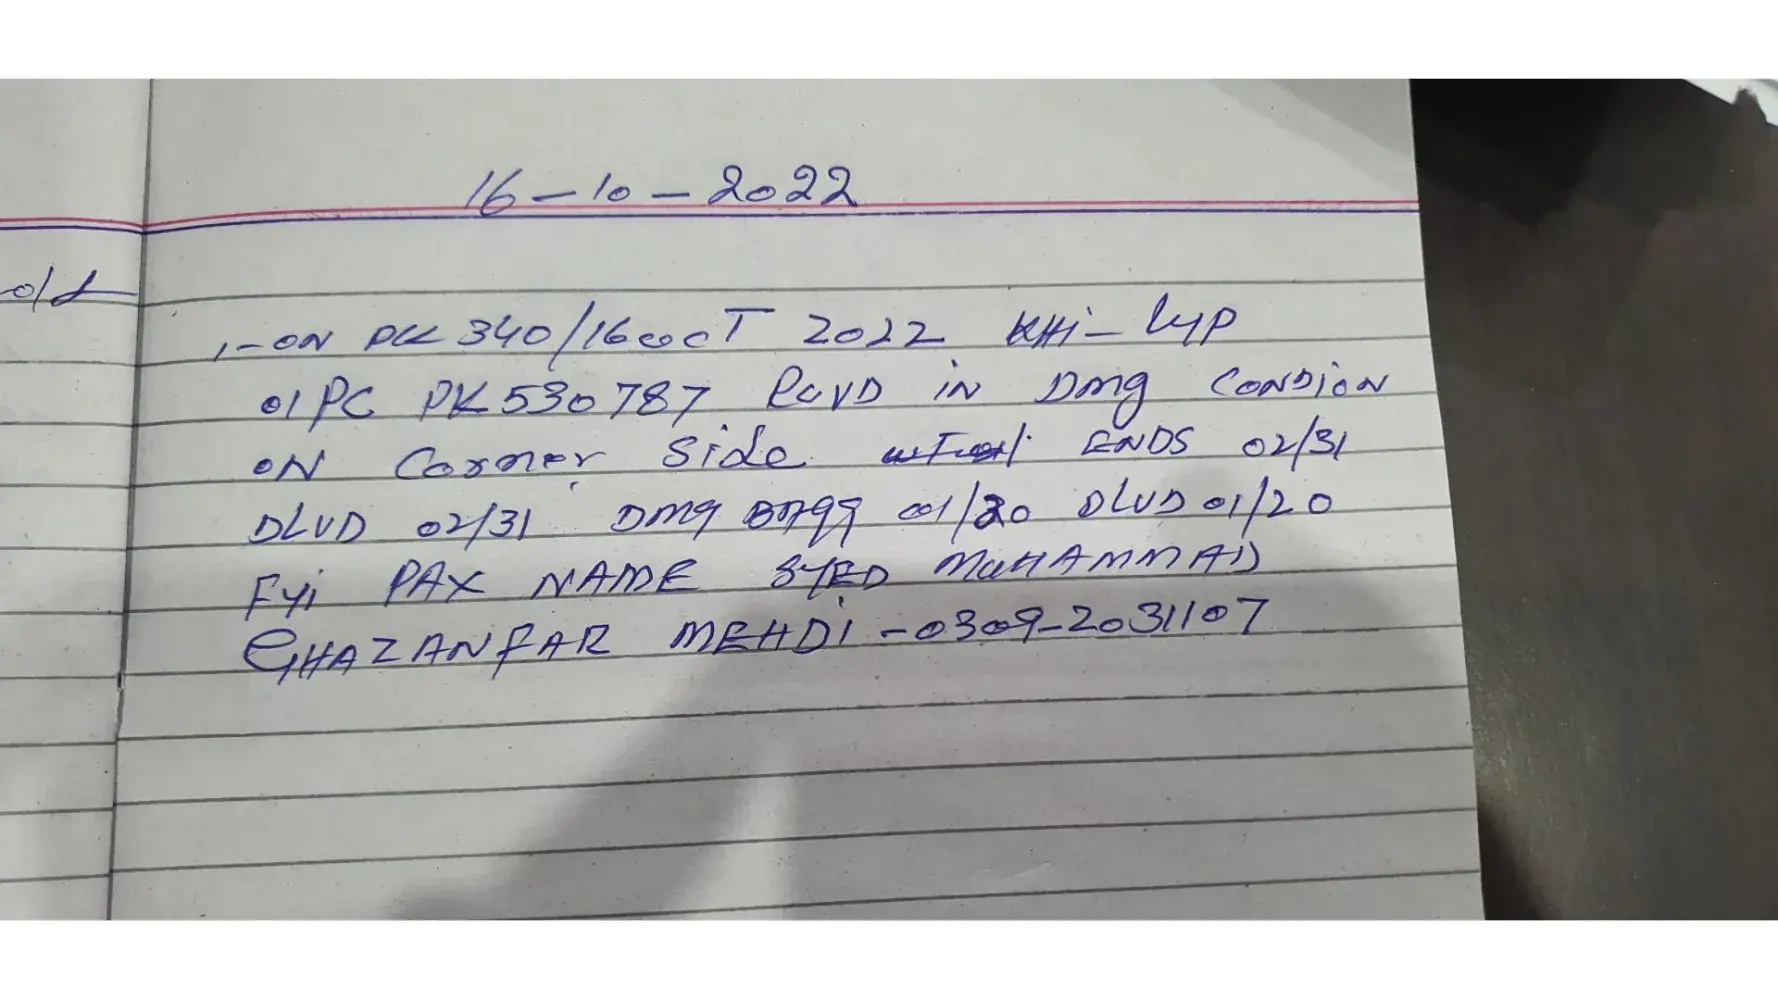 16-10-2022
old
1-ON PK 340/16 OCT 2022 KHI-LYP
01 PC PK 530787 RCVD IN DMG CONDION
ON Corner Side ENDS 02/31
DLVD 02/31 DMG BAGG 01/20 DLVD 01/20
FYI PAX NAME SYED MUHAMMAD
GHAZANFAR MEHDI - 0309-2031107